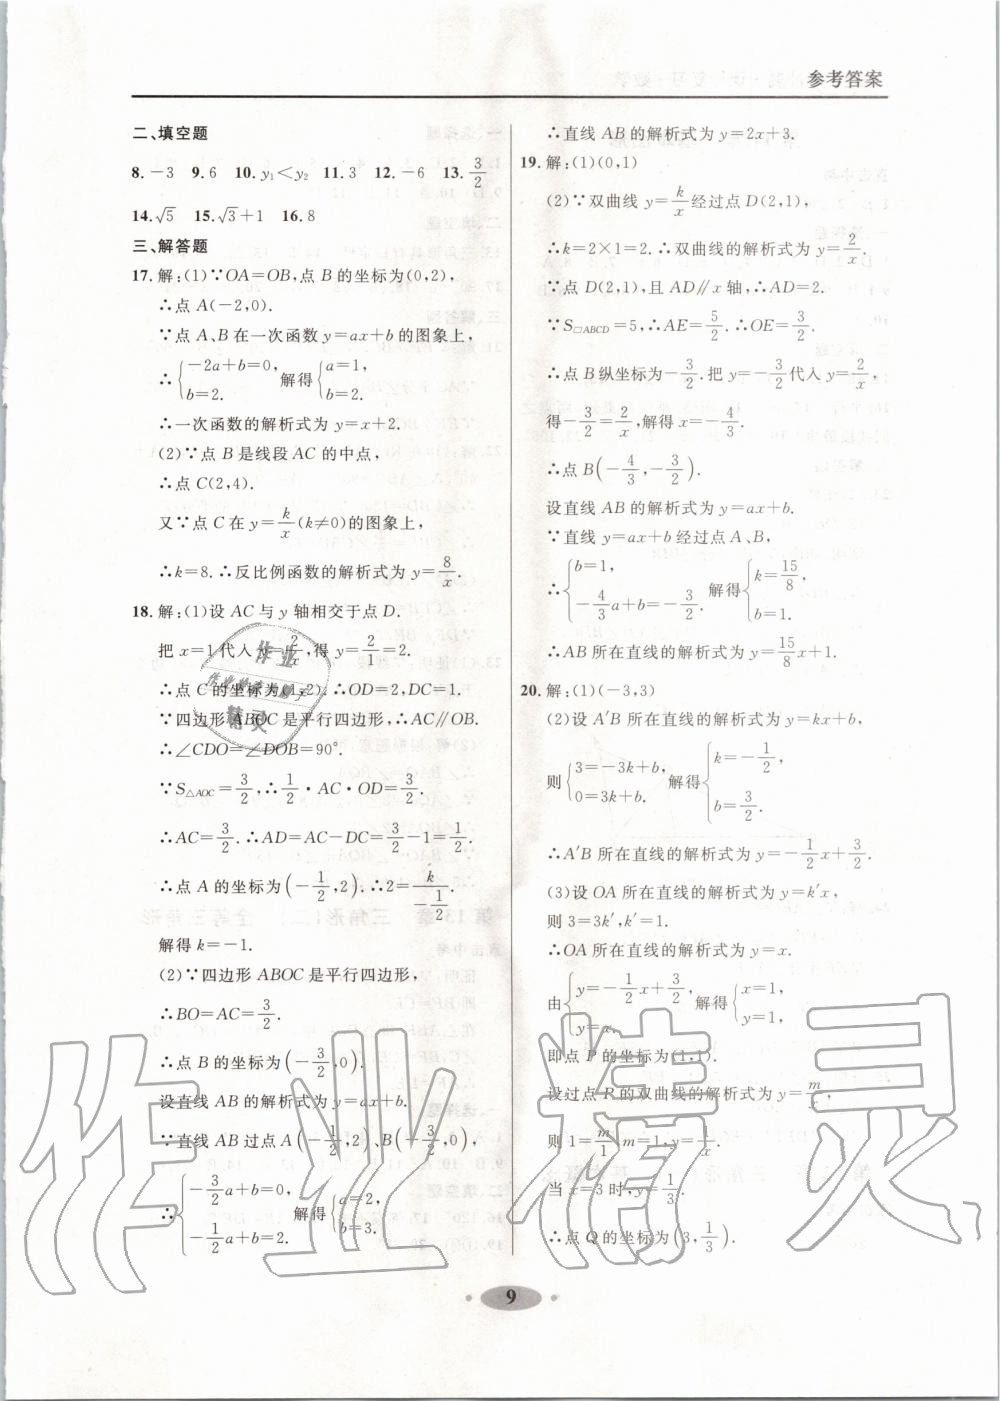 参考答案
二、填空题
8.-3 9.6 10.y₁<y₂ 11.3 12.-6 13.3/2
14.√5 15.√3+1 16.8
三、解答题
17.解:(1)∵OA=OB,点B的坐标为(0,2),
∴点A(-2,0).
∵点A、B在一次函数y=ax+b的图象上,
∴{-2a+b=0, b=2. 解得{a=1, b=2.
∴一次函数的解析式为y=x+2.
(2)∵点B是线段AC的中点,
∴点C(2,4).
又∵点C在y=k/x(k≠0)的图象上,
∴k=8.∴反比例函数的解析式为y=8/x.
18.解:(1)设AC与y轴相交于点D.
把x=1代入y=2/x,得y=2/1=2.
∴点C的坐标为(1,2).∴OD=2,DC=1.
∵四边形ABOC是平行四边形,∴AC∥OB.
∴∠CDO=∠DOB=90°.
∵S△AOC=3/2,∴1/2·AC·OD=3/2.
∴AC=3/2.∴AD=AC-DC=3/2-1=1/2.
∴点A的坐标为(-1/2,2).∴2=k/(-1/2)
解得k=-1.
(2)∵四边形ABOC是平行四边形,
∴BO=AC=3/2.
∴点B的坐标为(-3/2,0).
设直线AB的解析式为y=ax+b.
∵直线AB过点A(-1/2,2)、B(-3/2,0),
∴{-3/2a+b=0, -1/2a+b=2. 解得{a=2, b=3.
∴直线AB的解析式为y=2x+3.
19.解:(1)(0,1)
(2)∵双曲线y=k/x经过点D(2,1),
∴k=2×1=2.∴双曲线的解析式为y=2/x.
∵点D(2,1),且AD∥x轴,∴AD=2.
∵S▱ABCD=5,∴AE=5/2.∴OE=3/2.
∴点B纵坐标为-3/2.把y=-3/2代入y=2/x,
得-3/2=2/x,解得x=-4/3.
∴点B(-4/3,-3/2).
设直线AB的解析式为y=ax+b.
∵直线y=ax+b经过点A、B,
∴{b=1, -4/3a+b=-3/2. 解得{k=15/8, b=1.
∴AB所在直线的解析式为y=15/8x+1.
20.解:(1)(-3,3)
(2)设A′B所在直线的解析式为y=kx+b,
则{3=-3k+b, 0=3k+b. 解得{k=-1/2, b=3/2.
∴A′B所在直线的解析式为y=-1/2x+3/2.
(3)设OA所在直线的解析式为y=k′x,
则3=3k′,k′=1.
∴OA所在直线的解析式为y=x.
由{y=-1/2x+3/2, y=x. 解得{x=1, y=1.
即点P的坐标为(1,1).
设过点P的双曲线的解析式为y=m/x,
则1=m/1,m=1,y=1/x.
当x=3时,y=1/3.
∴点Q的坐标为(3,1/3).
9
作业
作业检查小助手
精灵
作业精灵